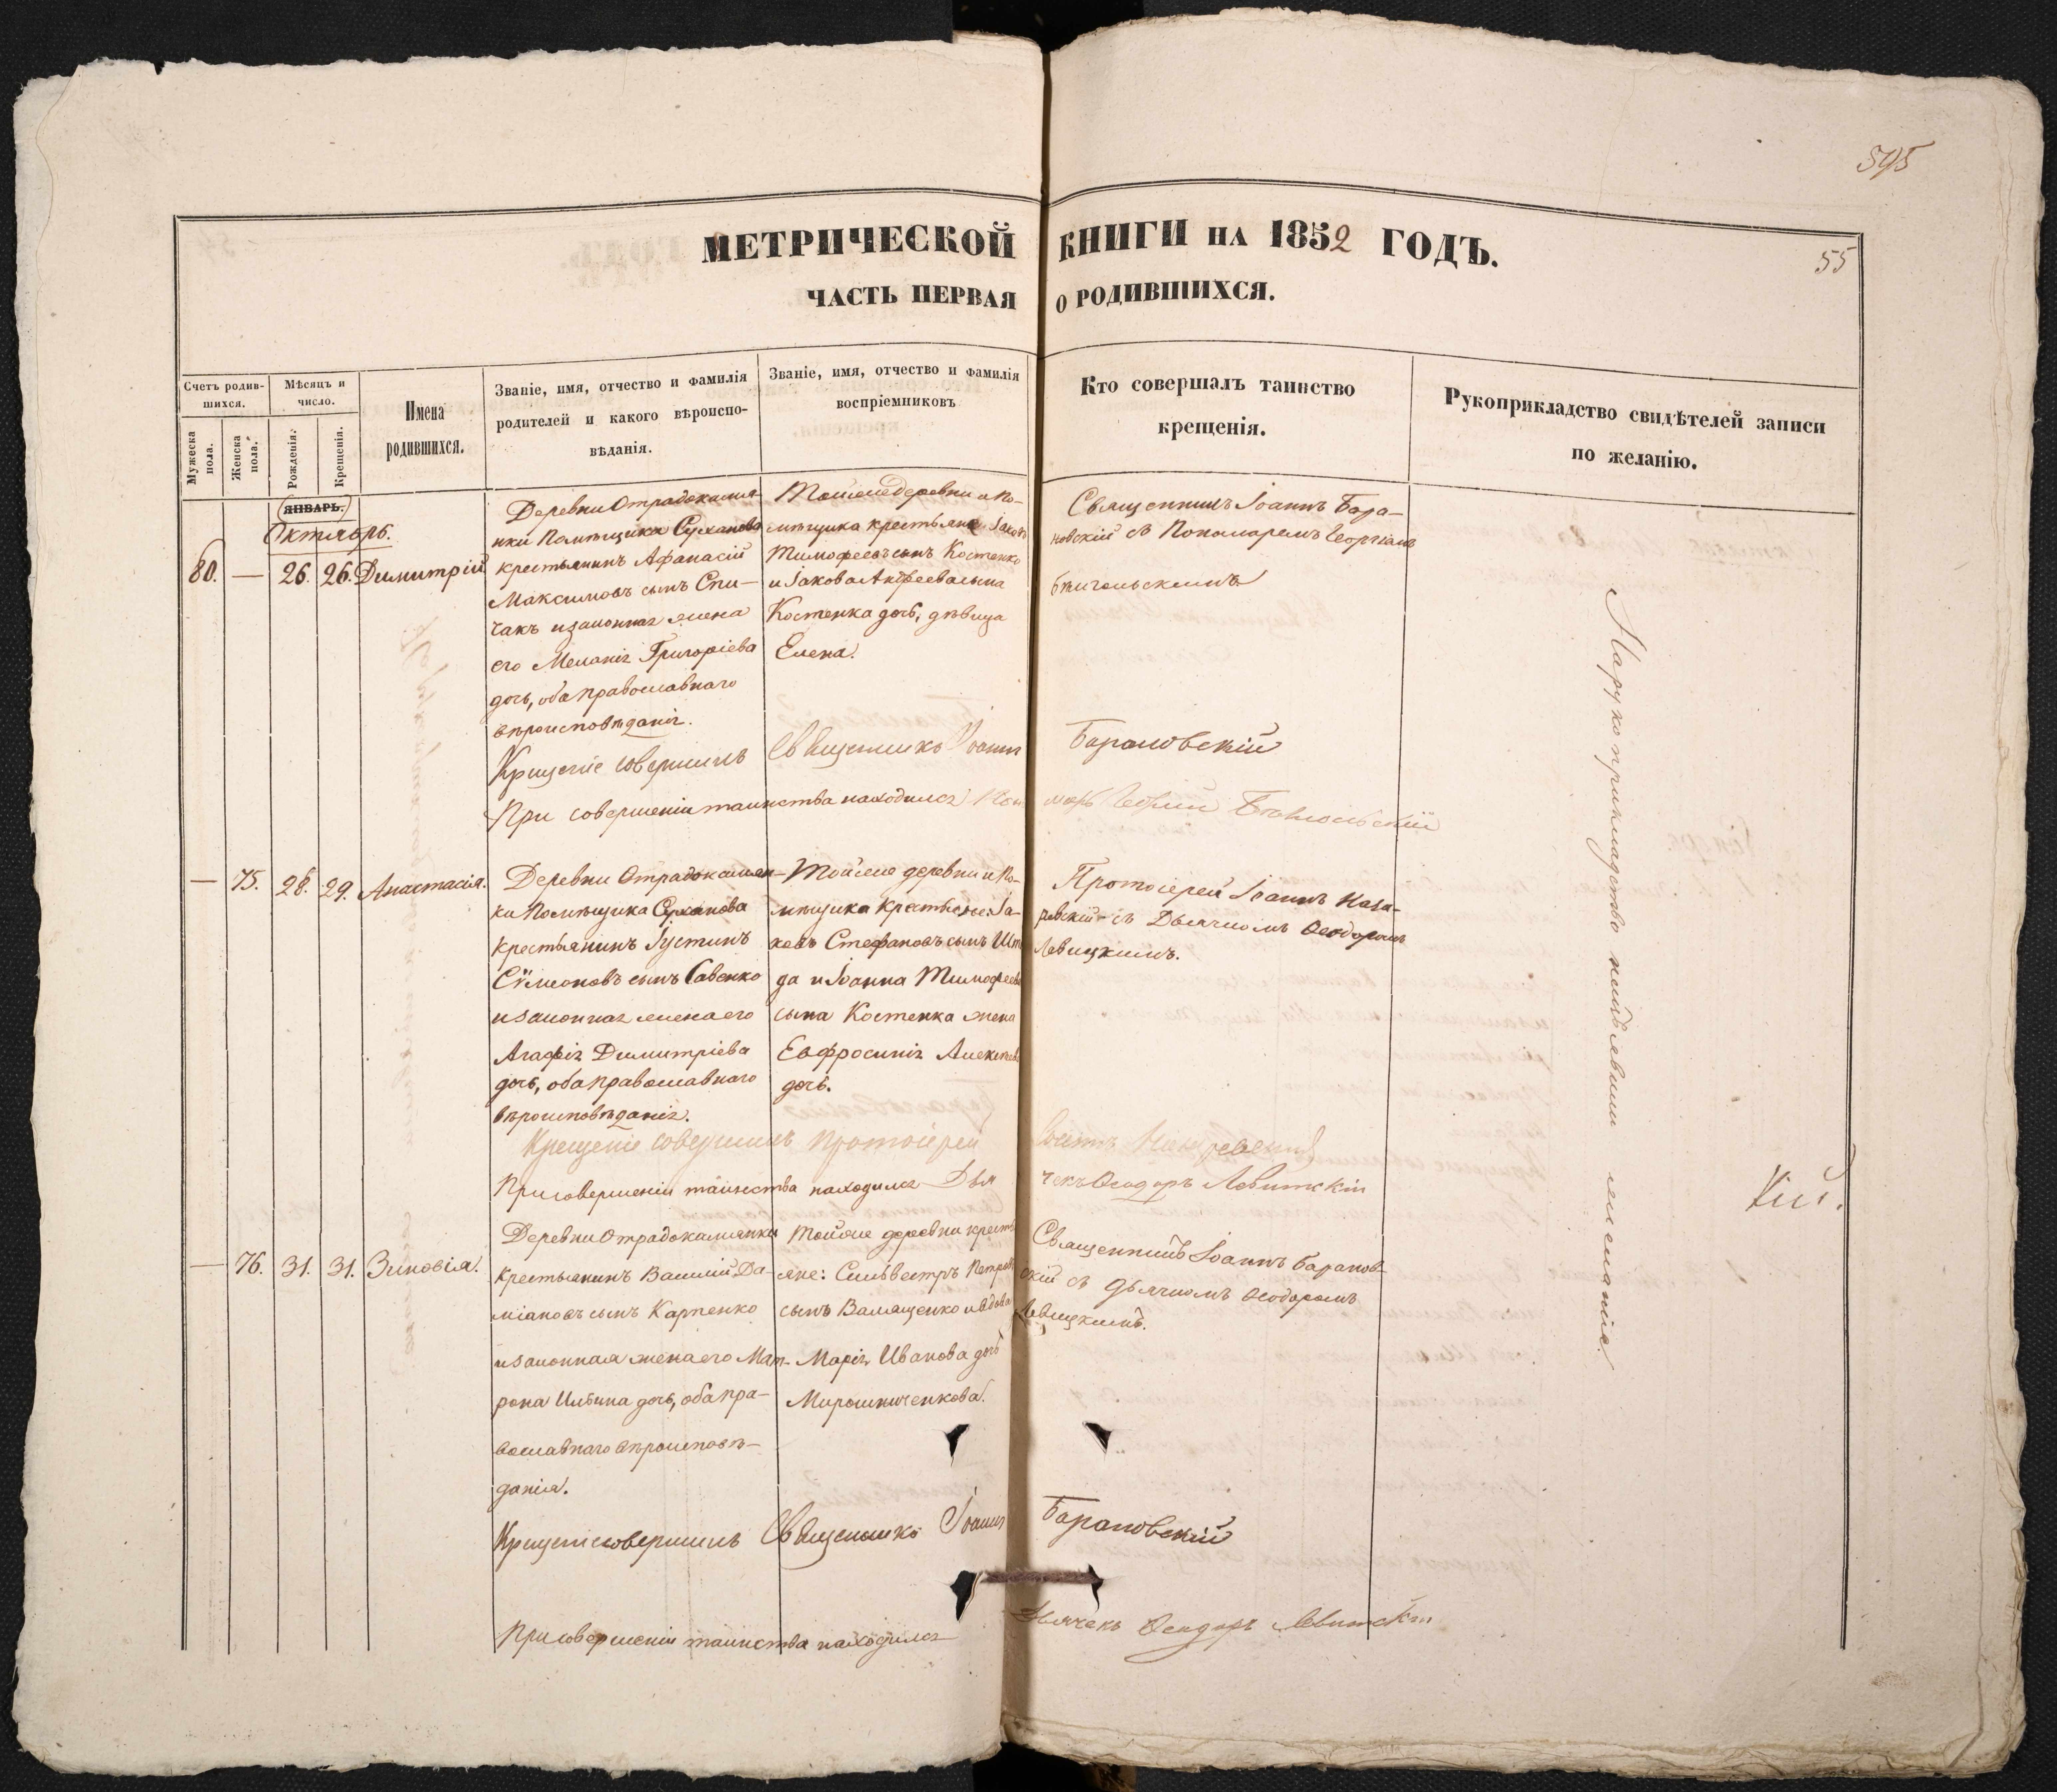 595
МЕТРИЧЕСКОЙ КНИГИ НА 1852 ГОДЪ.
55
ЧАСТЬ ПЕРВАЯ О РОДИВШИХСЯ.
Счетъ родив-
шихся.
Мужеска
пола.
Женска
пола.
Мѣсяцъ и
число.
Рожденія.
Крещенія.
Имена
родившихся.
Званіе, имя, отчество и фамилія
родителей и какого вѣроиспо-
вѣданія.
Званіе, имя, отчество и фамилія
воспріемниковъ
Кто совершалъ таинство
крещенія.
Рукоприкладство свидѣтелей записи
по желанію.
ЯНВАРЬ.
Октябрь.
80. — 26. 26. Димитрій
Деревни Отрадокамя-
нки Помѣщика Суханова
крестьянинъ Афанасій
Максимовъ сынъ Спи-
чакъ и законная жена
его Меланія Григоріева
дочь, оба православнаго
вѣроисповѣданія.
Той же деревни и по-
мѣщика крестьяне Іаковъ
Тимофеевъ сынъ Костенко
и Іакова Андреева сына
Костенка дочь, дѣвица
Елена.
Священникъ Іоаннъ Бара-
новскій съ Пономаремъ Георгіемъ
Крещеніе совершилъ Священникъ Іоаннъ Барановскій
При совершеніи таинства находился
— 75. 28. 29. Анастасія.
Деревни Отрадокамян-
ки Помѣщика Суханова
крестьянинъ Іустинъ
Сѵмеоновъ сынъ Савенко
и законная жена его
Агафія Димитріева
дочь, оба православнаго
вѣроисповѣданія.
Той же деревни и по-
мѣщика крестьяне: Іа-
ковъ Стефановъ сынъ
да и Іоанна Тимофеева
сына Костенка жена
Евфросинія Алексѣева
дочь.
Протоіерей Іоаннъ Наза-
ревскій съ Дьячкомъ Ѳеодоромъ
Левицкимъ.
Крещеніе совершилъ Протоіерей
При совершеніи таинства находился Дьячекъ Ѳеодоръ Левитскій
— 76. 31. 31. Зиновія.
Деревни Отрадокамянки
крестьянинъ Василій Да-
міановъ сынъ Карпенко
и законная жена его Мат-
рона Ильина дочь, оба пра-
вославнаго вѣроисповѣ-
данія.
Той же деревни кресть
яне: Сильвестръ Петровъ
сынъ Валященко и вдова
Марія Иванова дочь
Мирошниченкова.
Священникъ Іоаннъ Баранов-
скій съ дьячкомъ Ѳеодоромъ
Левицкимъ.
Крещеніе совершилъ Священникъ Іоаннъ Барановскій
При совершеніи таинства находился Дьячекъ Ѳеодоръ Левитскій
На рукоприкладство не изъявили желанія
кій.